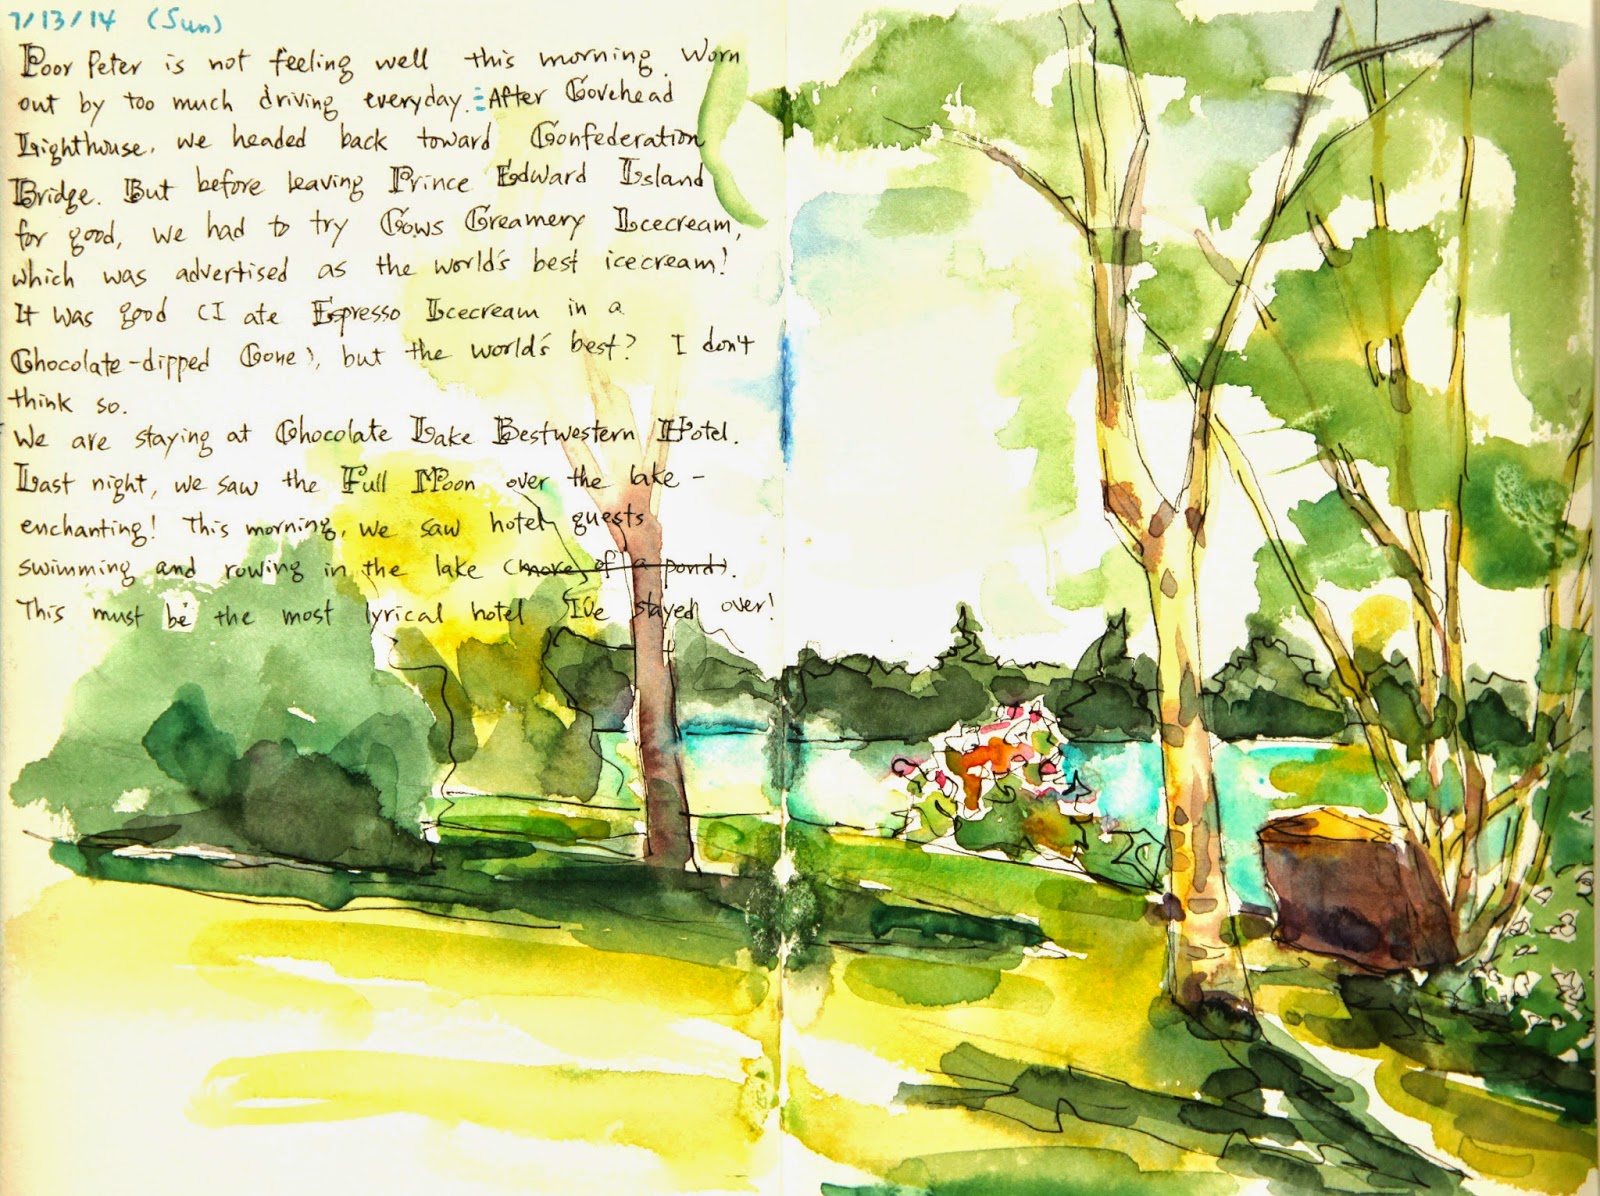 7/13/14 (Sun)
Poor Peter is not feeling well this morning. Worn
out by too much driving everyday. After Covehead
Lighthouse, we headed back toward Confederation
Bridge. But before leaving Prince Edward Island
for good, we had to try Cows Creamery Icecream,
which was advertised as the world's best icecream!
It was good (I ate Espresso Icecream in a
Chocolate-dipped Cone), but the world's best? I don't
think so.
We are staying at Chocolate Lake Bestwestern Hotel.
Last night, we saw the Full Moon over the lake –
enchanting! This morning, we saw hotel guests
swimming and rowing in the lake (more of a pond).
This must be the most lyrical hotel I've stayed over!